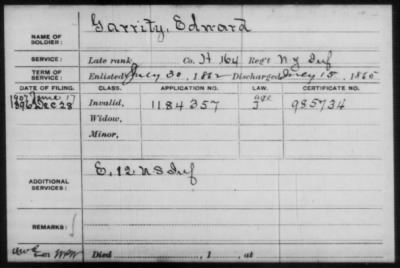 NAME OF SOLDIER: Garrity, Edward
SERVICE: Late rank Co. H. 164 Reg't N.Y. Inf
TERM OF SERVICE: Enlisted July 30, 1862 Discharged July 15, 1865
DATE OF FILING. CLASS. APPLICATION NO. LAW. CERTIFICATE NO.
1907 June 17
1896 Dec 28 Invalid, 1184357 985734
Widow,
Minor,
ADDITIONAL SERVICES: E. 12 U S Inf
REMARKS:
Died , 1 , at